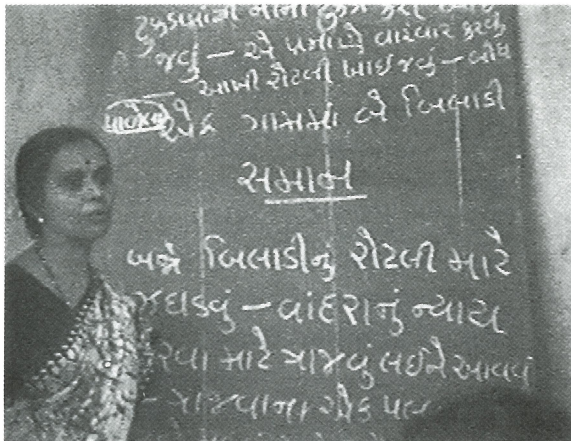 ટુકડામાંથી નાના ટુકડા કરી
જવું – એ પ્રમાણે વારંવાર કરવું
આખી રોટલી ખાઈ જવું – બોધ
એક ગામમાં બે બિલાડી
સમાન
બન્ને બિલાડીનું રોટલી માટે
ઝઘડવું – વાંદરાનું ન્યાય
કરવા માટે ત્રાજવું લઈને આવવું
– ત્રાજવાના એક પલ